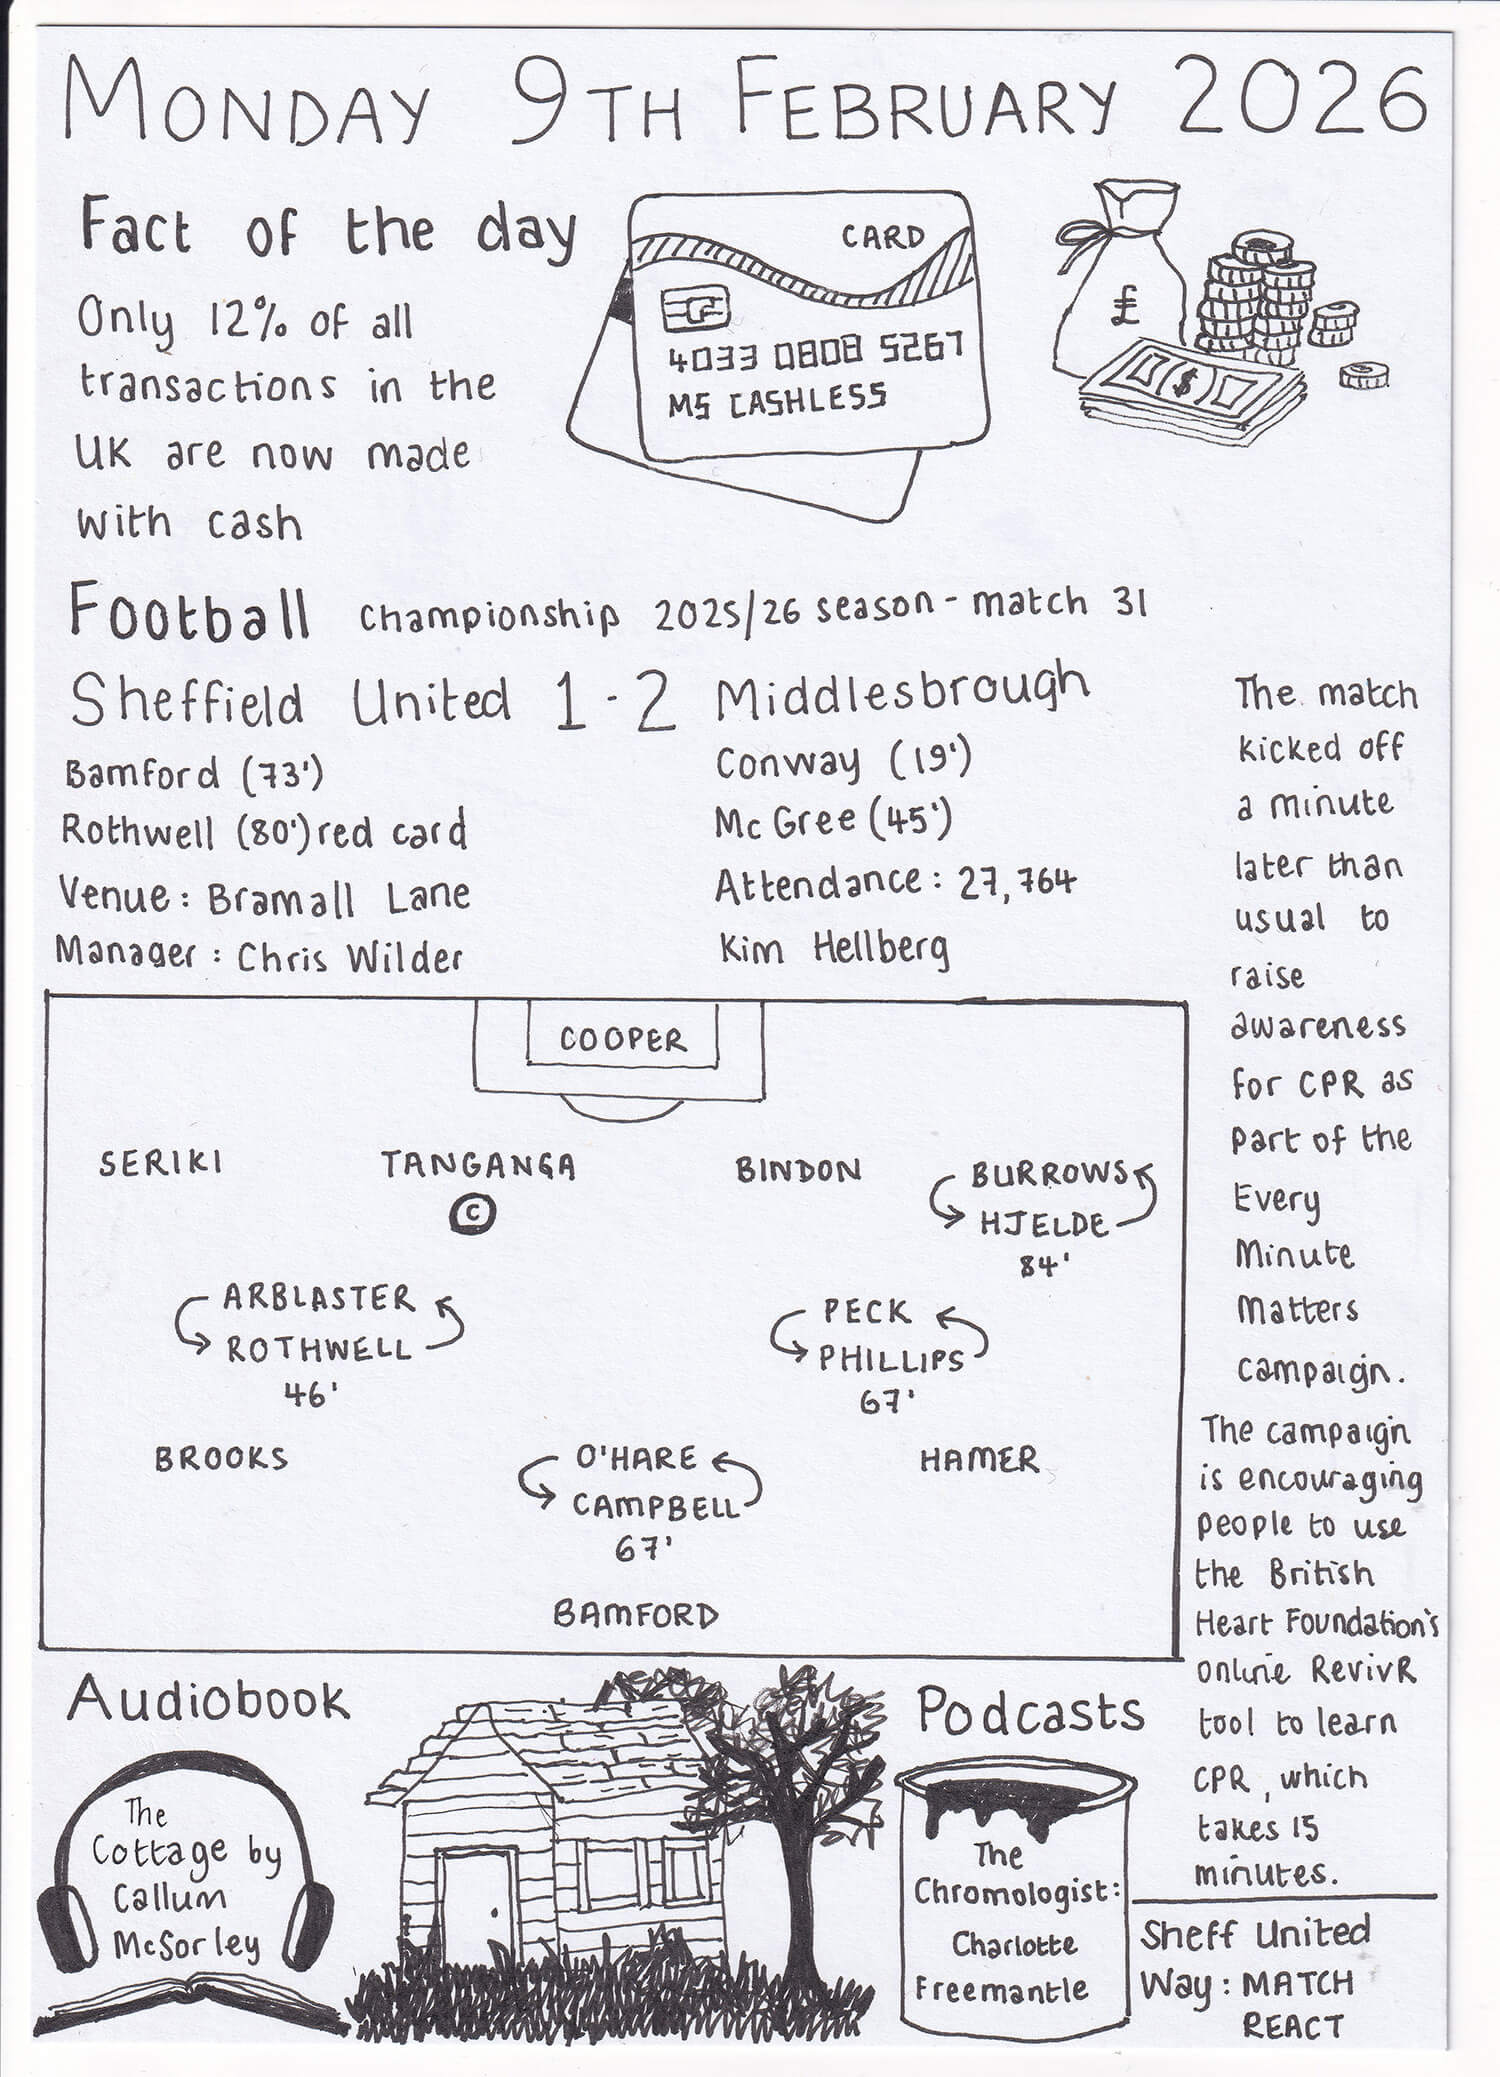 MONDAY 9TH FEBRUARY 2026
Fact of the day
Only 12% of all
transactions in the
UK are now made
with cash
CARD
4033 0808 5267
MS CASHLESS
£
$
Football Championship 2025/26 season - match 31
Sheffield United 1 - 2 Middlesbrough
Bamford (73')
Rothwell (80') red card
Venue: Bramall Lane
Manager: Chris Wilder
Conway (19')
McGree (45')
Attendance: 27,764
Kim Hellberg
The match
kicked off
a minute
later than
usual to
raise
awareness
for CPR as
part of the
Every
Minute
Matters
campaign.
The campaign
is encouraging
people to use
the British
Heart Foundation's
online RevivR
tool to learn
CPR, which
takes 15
minutes.
COOPER
SERIKI TANGANGA BINDON BURROWS
C
HJELDE
84'
ARBLASTER
ROTHWELL
46'
PECK
PHILLIPS
67'
BROOKS O'HARE HAMER
CAMPBELL
67'
BAMFORD
Audiobook
The
Cottage by
Callum
McSorley
Podcasts
The
Chromologist:
Charlotte
Freemantle
Sheff United
Way: MATCH
REACT